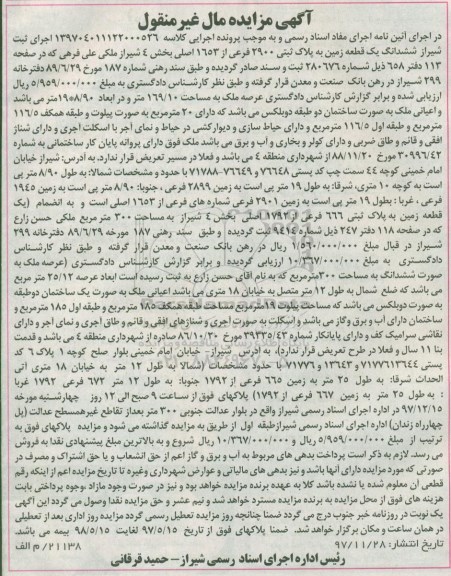 آگهی مزایده مال غیرمنقول
در اجرای آئین نامه اجرای مفاد اسناد رسمی و به موجب پرونده اجرایی کلاسه ۱۳۹۷۰۴۰۱۱۱۲۲۰۰۰۵۲۶ اجرای ثبت
شیراز ششدانگ یک قطعه زمین به پلاک ثبتی ۲۹۰۰ فرعی از ۱۶۵۳ اصلی بخش ۴ شیراز ملکی علی فرهی که در صفحه
۱۱۳ دفتر ۶۵۸ ذیل شماره ۲۸۰۶۷۶ ثبت و سند صادر گردیده و طبق سند رهنی شماره ۱۸۷ مورخ ۸۹/۶/۲۹ دفترخانه
۲۹۹ شیراز در رهن بانک صنعت و معدن قرار گرفته و طبق نظر کارشناس دادگستری به مبلغ ۵/۹۵۹/۰۰۰/۰۰۰ ریال
ارزیابی شده و برابر گزارش کارشناس دادگستری عرصه ملک به مساحت ۱۶۹/۱۰ متر و در ابعاد ۸/۹۰*۱۹ متر می باشد
و اعیانی ملک به صورت ساختمان دو طبقه دوبلکس می باشد که دارای ۲۰ مترمربع به صورت پیلوت و طبقه همکف ۱۱۶/۵
مترمربع و طبقه اول ۱۱۶/۵ مترمربع و دارای حیاط سازی و دیوارکشی در حیاط و نمای آجر با اسکلت آجری و دارای شناژ
افقی و قائم و طاق ضربی و دارای کولر و بخاری و آب و برق می باشد ملک فوق دارای پروانه پایان کار ساختمانی به شماره
۳۰۹۹۶/۴۲ مورخ ۸۸/۱۱/۲۰ از شهرداری منطقه ۴ می باشد و فعلا در مسیر تعریض قرار ندارد. به آدرس: شیراز خیابان
امام خمینی کوچه ۴۴ سمت چپ کد پستی ۷۶۶۴۸ و ۷۶۶۴۹-۷۱۷۸۸ با حدود و مشخصات شمالا: به طول ۸/۹۰ متر پی
است به کوچه ۱۰ متری، شرقا: به طول ۱۹ متر پی است به زمین ۲۸۹۹ فرعی ، جنوبا: ۸/۹۰ متر پی است به زمین ۱۹۴۵
فرعی ، غربا : بطول ۱۹ متر پی است به زمین ۲۹۰۱ فرعی شماره های فرعی از ۱۶۵۳ اصلی است و به انضمام (یک
قطعه زمین به پلاک ثبتی ۶۶۶ فرعی از ۱۷۹۲ اصلی بخش ۴ شیراز به مساحت ۳۰۰ متر مربع ملکی حسن زارع
که در صفحه ۱۱۸ دفتر ۲۴۷ ذیل شماره ۹۴۱۴ ثبت گردیده و طبق سند رهنی ۱۸۷ مورخه ۸۹/۶/۲۹ دفترخانه ۲۹۹
شیراز در قبال مبلغ ۱/۵۶۰/۰۰۰/۰۰۰ ریال در رهن بانک صنعت و معدن قرار گرفته و طبق نظر کارشناس
دادگستری به مبلغ ۱۰/۳۶۷/۰۰۰/۰۰۰ ارزیابی گردیده و برابر گزارش کارشناس دادگستری (عرصه ملک به
صورت ششدانگ به مساحت ۳۰۰مترمربع که به نام آقای حسن زارع به ثبت رسیده است ابعاد عرصه ۱۲/۲۵ متر مربع
می باشد که ضلع شمال به طول ۱۲ متر متصل به خیابان ۱۸ متری می باشد اعیانی ملک به صورت یک ساختمان دوطبقه
به صورت دوبلکس می باشد که مساحت پیلوت ۱۹مترمربع مساحت طبقه همکف ۱۸۵ مترمربع و طبقه اول ۱۸۵ مترمربع و
ساختمان دارای آب و برق وگاز می باشد و اسکلت به صورت آجری و شناژهای افقی و قائم و طاق آجری و نمای آجر و دارای
نقاشی سرامیک کف و دارای پایانکار شماره ۳۹۳۳۵/۴۲ مورخ ۸۶/۱۰/۲۰ صادره از شهرداری منطقه ۴ می باشد و قدمت
بنا ۱۱ سال و فعلا در طرح تعریض قرار ندارد)، به آدرس شیراز- خیابان امام خمینی بلوار صلح کوچه ۱ پلاک ۶ کد
پستی ۷۱۷۷۶۱۳۶۴۴ و ۱۳۶۴۳ و ۷۱۷۷۶ با حدود مشخصات (شمالا به طول ۱۲ متر به خیابان ۱۸ متری آتی
الاحداث شرقا: به طول ۲۵ متر به زمین ۶۶۵ فرعی از ۱۷۹۲ جنوبا: به طول ۱۲ متر ۶۷۳ فرعی ۱۷۹۲ غربا
: به طول ۲۵ متر به زمین ۶۶۷ فرعی از ۱۷۹۲) پلاکهای فوق از ساعت ۹ صبح الی ۱۲ روز چهارشنبه مورخه
۹۷/۱۲/۱۵ در اداره اجرای اسناد رسمی شیراز واقع در بلوار عدالت جنوبی ۳۰۰ متر بعداز تقاطع غیرهمسطح عدالت (پل
چهارراه زندان) اداره اجرای اسناد رسمی شیرازطبقه اول از طریق به مزایده گذاشته می شود و مزایده پلاکهای فوق به
ترتیب از مبلغ ۵/۹۵۹/۰۰۰/۰۰۰ ریال و ۱۰/۳۶۷/۰۰۰/۰۰۰ ریال شروع و به بالاترین مبلغ پیشنهادی نقدا به فروش
می رسد. لازم به ذکر است پرداخت بدهی های مربوط به آب و برق و گاز اعم از حق انشعاب و یا حق اشتراک و مصرف در
صورتی که مورد مزایده دارای آنها باشد و نیز بدهی های مالیاتی و عوارض شهرداری وغیره تا تاریخ مزایده اعم از اینکه رقم
قطعی آن معلوم شده یا نشده باشد کلا به عهده برنده مزایده خواهد بود و نیز در صورت وجود مازاد ،وجوه پرداختی بابت
هزینه های فوق از محل مزایده به برنده مزایده مسترد خواهد شد و نیم عشر و حق مزایده نقدا وصول می گردد این آگهی
یک نوبت در روزنامه خبر جنوب درج می گردد ضمنا چنانچه روز مزایده تعطیل رسمی گردد مزایده روز اداری بعد از تعطیلی
در همان ساعت و مکان برگزار خواهد شد. ضمنا پلاکهای فوق از تاریخ ۹۷/۵/۱۵ لغایت ۹۸/۵/۱۵ بیمه می باشد.
تاریخ انتشار: ۹۷/۱۱/۲۸ ۲۱۱۳۸/ م الف
رئیس اداره اجرای اسناد رسمی شیراز – حمید قرقانی